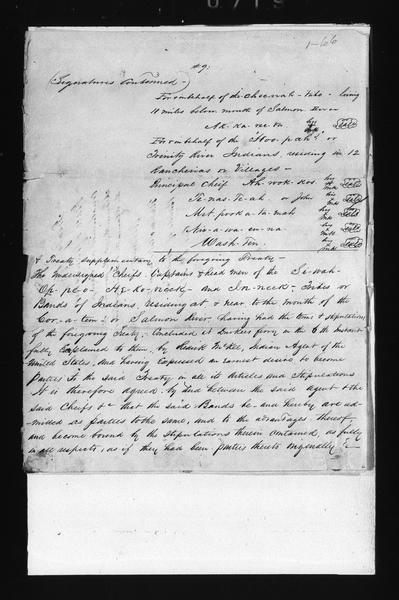 1-66
#9.
(Signatures Continued -)
For on behalf of di-chee-nah - tribe - living
11 miles below mouth of Salmon River
Ak-ka-ne-on his mark Seal
For on behalf of the "Hoo-pah" or
Trinity River Indians, residing in 12
Rancherias or Villages -
Principal Cheif Ah-wok-kos his mk Seal
Te-nas-te-ah or John his mk Seal
Met-pook-a-ta-mah his mk Seal
Nir-a-wa-en-na his mark Seal
Wash-ten. his mk Seal
& Treaty Supplementary to the foregoing Treaty -
The Undersigned Cheifs Captains & head men of the Si-wah
Op-pe-o - He-ko-neck - and I-n-neck - Tribes or
Bands of Indians, residing at & near to the mouth of the
Cor-a-tem: or Salmon River having had the terms & stipulations
of the foregoing Treaty, Concluded at Durkees ferry on the 6th Instant
fully Explained to them, by Redick McKee, Indian Agent of the
United States, and having Expressed an Earnest desire to become
Parties to the said Treaty in all its Articles and Stipulations
It is therefore agreed, by and between the said agent & the
said Cheifs &c that the said Bands be and hereby are ad-
mitted as parties to the same, and to the advantages thereof
and become bound by the stipulations therein contained, as fully
in all respects, as if they had been parties thereto originally &